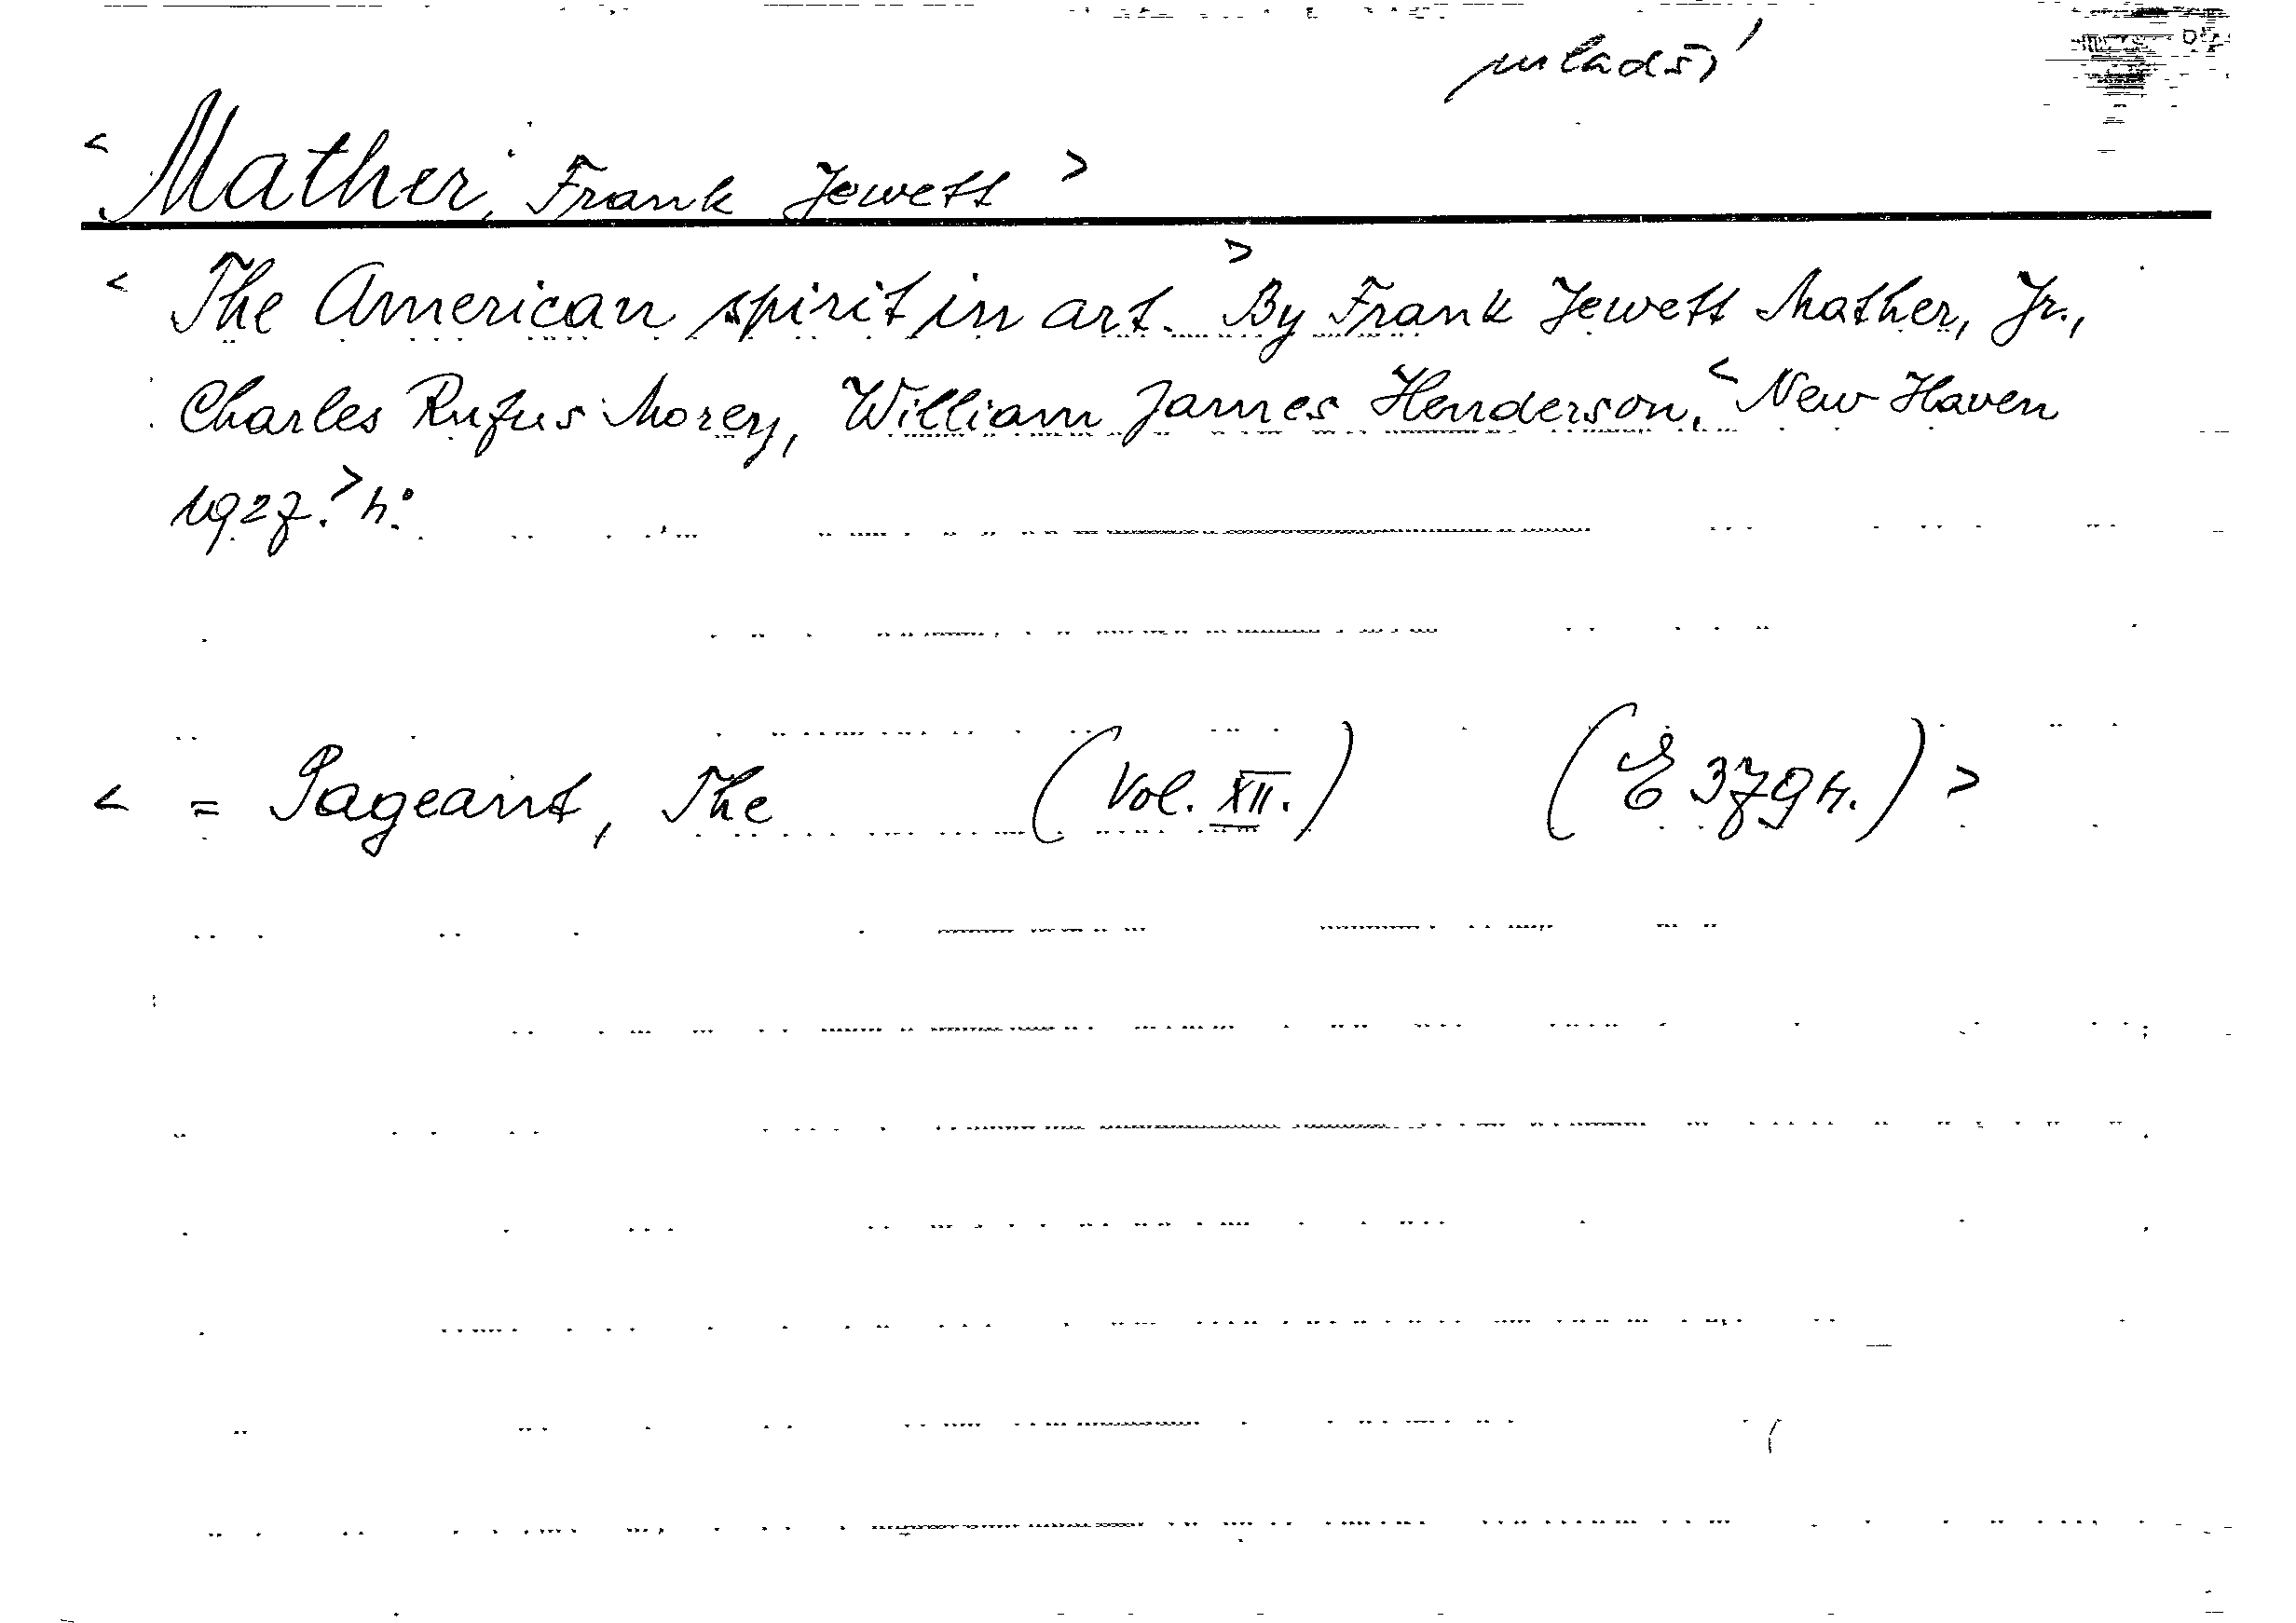 mladší
< Mather, Frank Jewett >
< The American spirit in art. > By Frank Jewett Mather, Jr.,
Charles Rufus Morey, William James Henderson. < New Haven
1927. > 4°.
< = Pageant, The (Vol. XII.) (E 379 4.) >